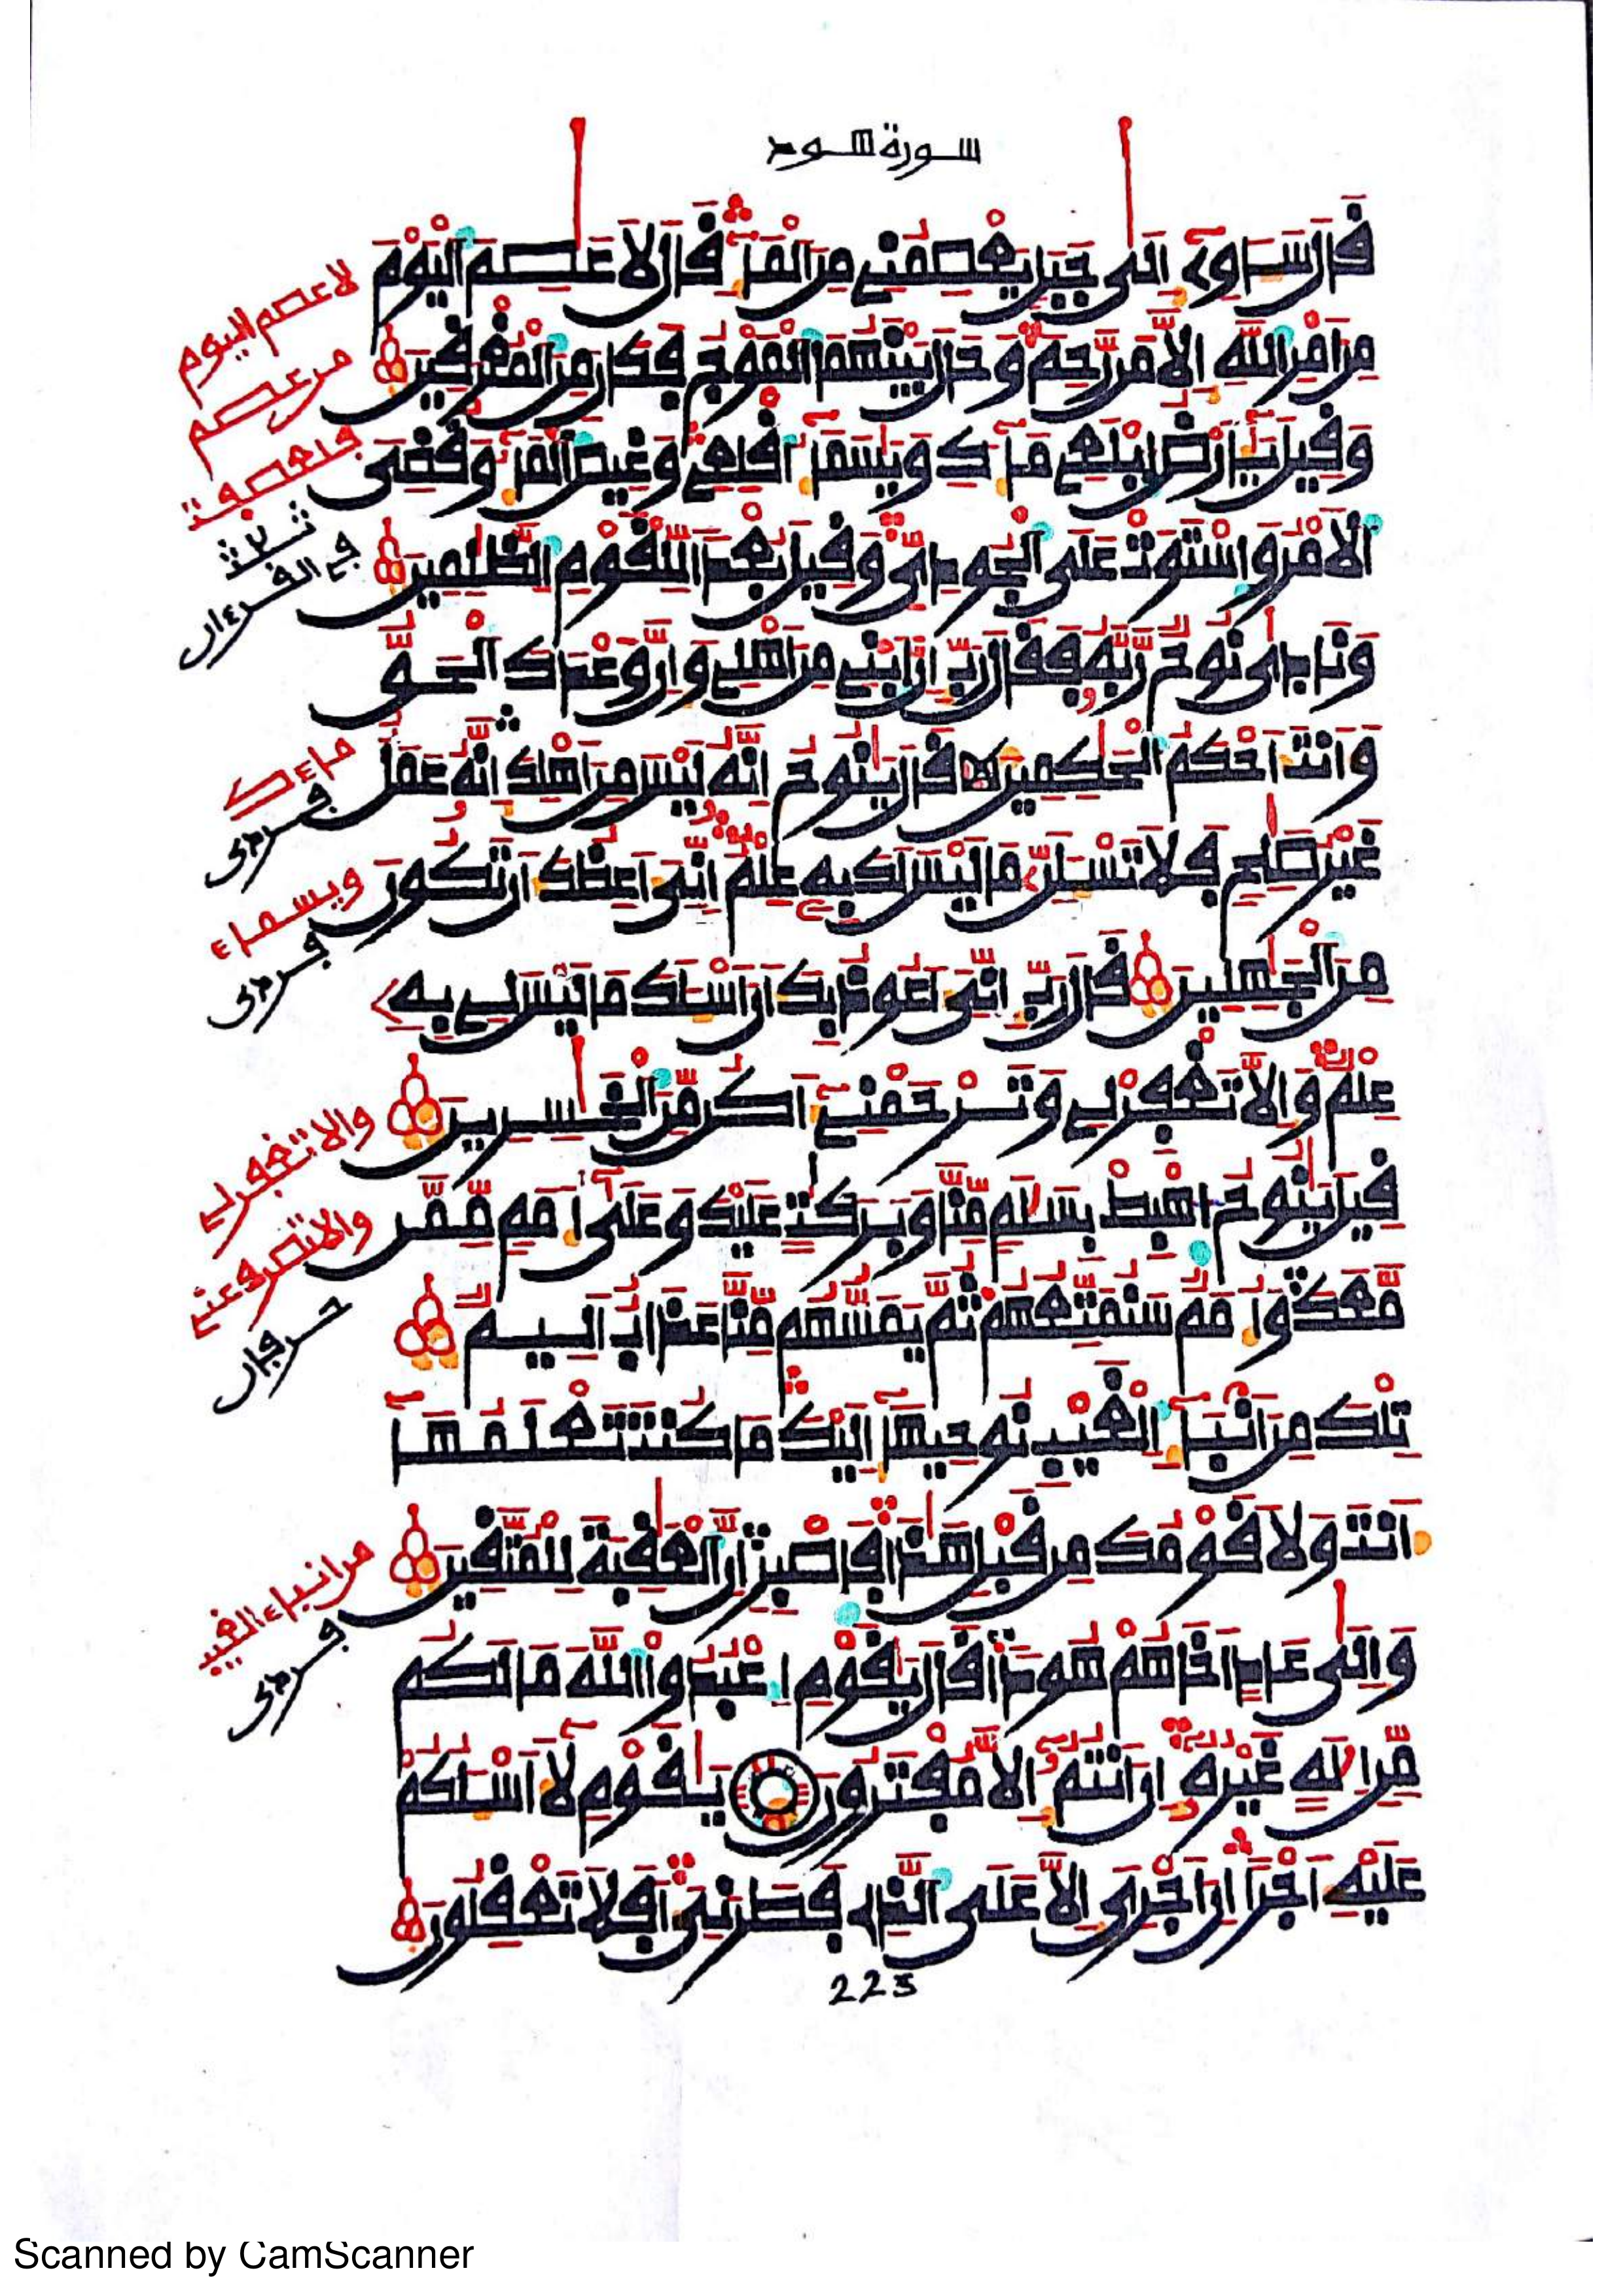 سورة هود
قال سـاوي إلى جبل يعصمني من الماء قال لا عصم اليوم
من امر الله الا من رحم وحال بينهما الموج فكان من المغرقين
وقيل يارض ابلعي ماءك ويسماء اقلعي وغيض الماء وقضى
الامر واستوت على الجودي وقيل بعدا للقوم الظلمين
ونادى نوح ربه فقال رب ان ابني من اهلي وان وعدك الحق
وانت احكم الحكمين قال ينوح انه ليس من اهلك انه عمل
غير صلح فلا تسلن ما ليس لك به علم اني اعظك ان تكون
من الجهلين قال رب اني اعوذ بك ان اسلك ما ليس لي به
علم والا تغفر لي وترحمني اكن من الخسرين
قيل ينوح اهبط بسلم منا وبركت عليك وعلى امم ممن
معك وامم سنمتعهم ثم يمسهم منا عذاب اليم
تلك من انباء الغيب نوحيها اليك ما كنت تعلمها
انت ولا قومك من قبل هذا فاصبر ان العقبة للمتقين
والى عاد اخاهم هودا قال يقوم اعبدوا الله ما لكم
من اله غيره ان انتم الا مفترون يقوم لا اسلكم
عليه اجرا ان اجري الا على الذي فطرني افلا تعقلون
223
لا عصم اليوم
من عصم
ثلث
في القرءان
ماءك
فردى
ويسماء
فردى
والا تغفر لي
والا تصرف عني
حرفان
من انباء الغيب
فردى
Scanned by CamScanner